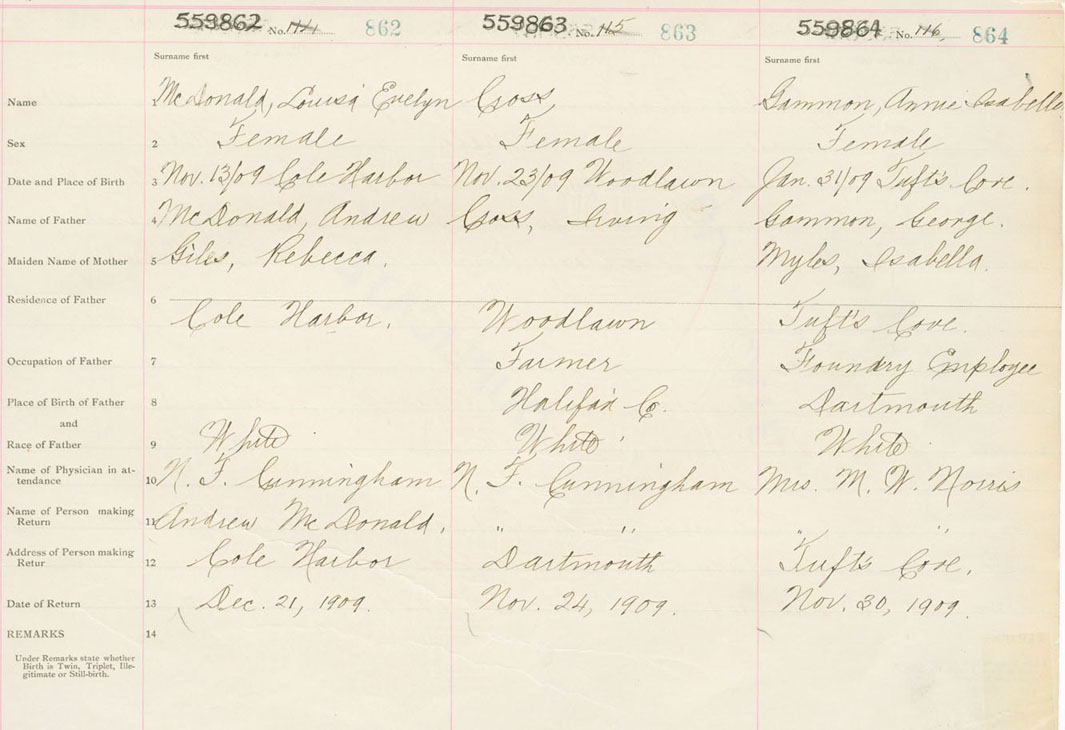 559862 No. 114 862 559863 No. 115 863 559864 No. 116 864
Surname first Surname first Surname first
Name McDonald, Louisa Evelyn Gammon, Annie Isabella
Sex 2 Female Female Female
Date and Place of Birth 3 Nov. 13/09 Cole Harbor Nov. 23/09 Woodlawn Jan. 31/09 Tuft's Cove.
Name of Father 4 McDonald, Andrew Irving Gammon, George.
Maiden Name of Mother 5 Giles, Rebecca. Myles, Isabella.
Residence of Father 6
Cole Harbor. Woodlawn Tuft's Cove.
Occupation of Father 7 Farmer Foundry Employee
Place of Birth of Father 8 Halifax Co. Dartmouth
and
Race of Father 9 White White White
Name of Physician in at-
tendance 10 N. F. Cunningham N. F. Cunningham Mrs. M. W. Norris
Name of Person making
Return 11 Andrew McDonald. " " " "
Address of Person making
Retur 12 Cole Harbor Dartmouth Tuft's Cove.
Date of Return 13 Dec. 21, 1909. Nov. 24, 1909. Nov. 30, 1909.
REMARKS 14
Under Remarks state whether
Birth is Twin, Triplet, Ille-
gitimate or Still-birth.